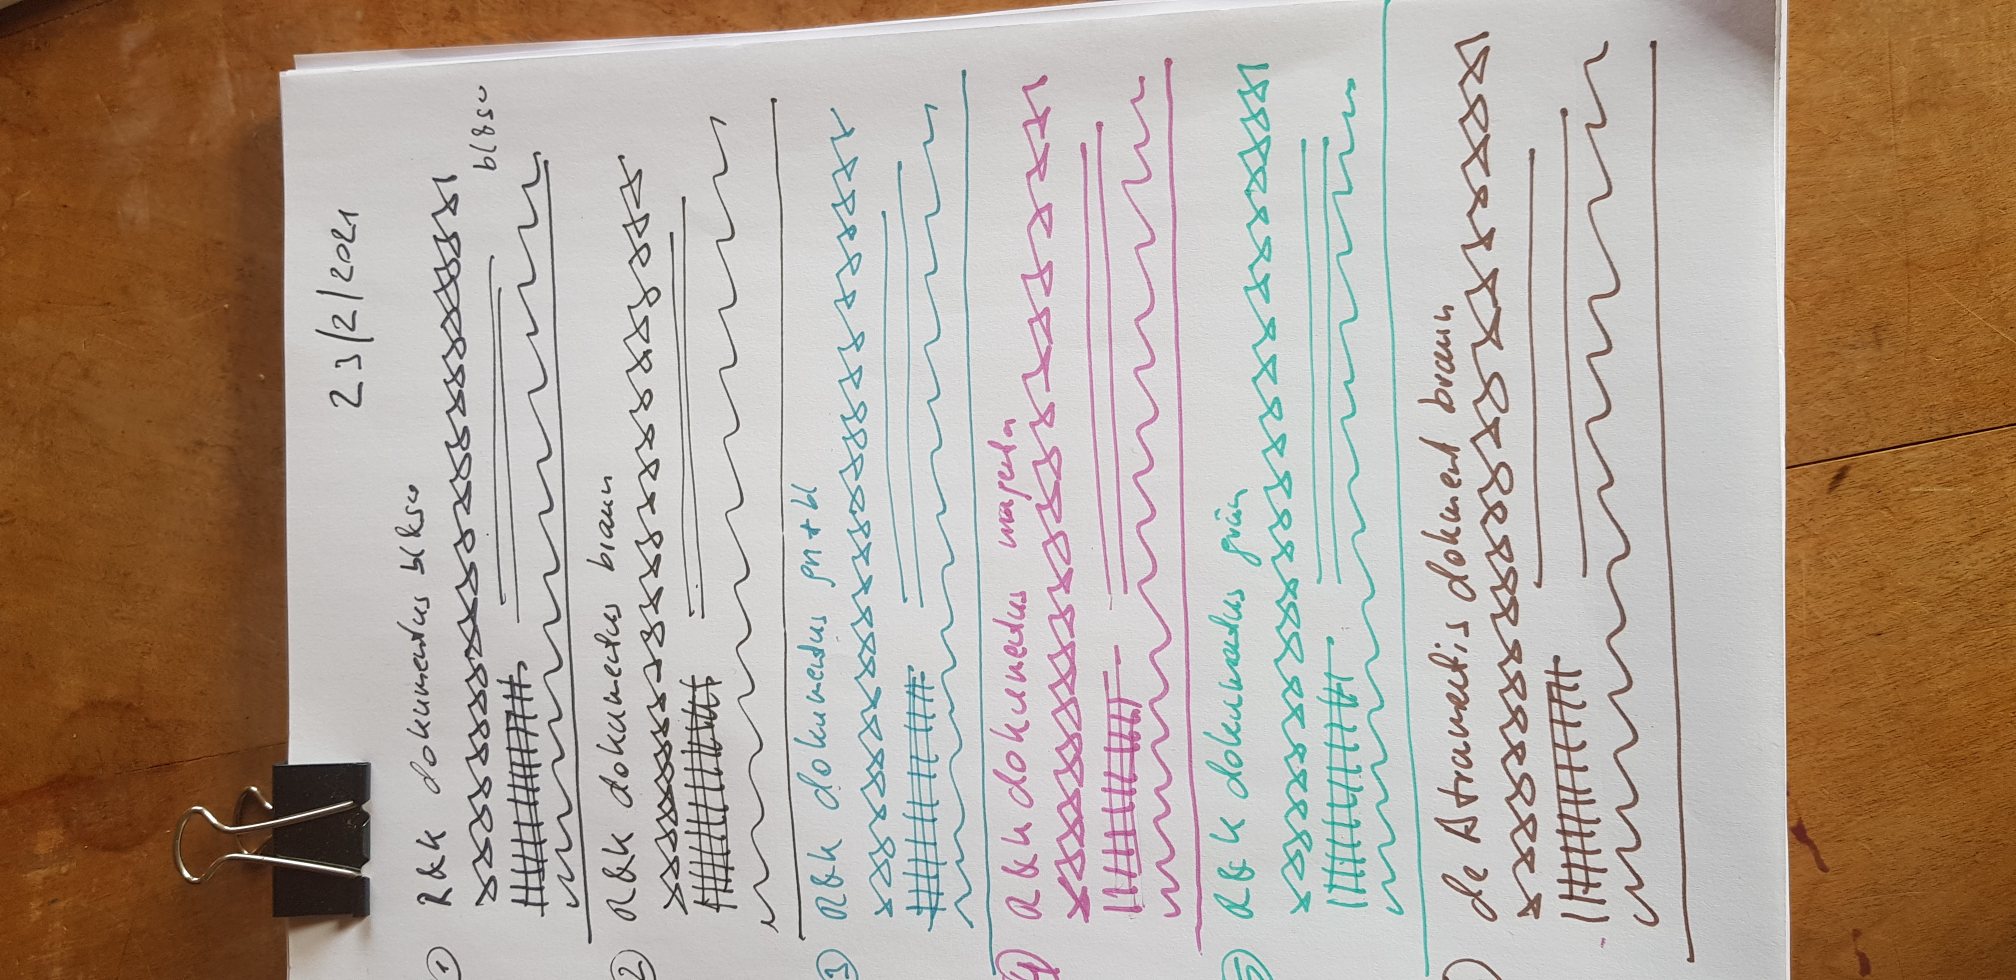 23/2/2021
1 R&K dokumentus bl&sw
bl&sw
2 R&K dokumentus braun
3 R&K dokumentus gn+bl
4 R&K dokumentus magenta
5 R&K dokumentus grün
de Atramentis dokument braun